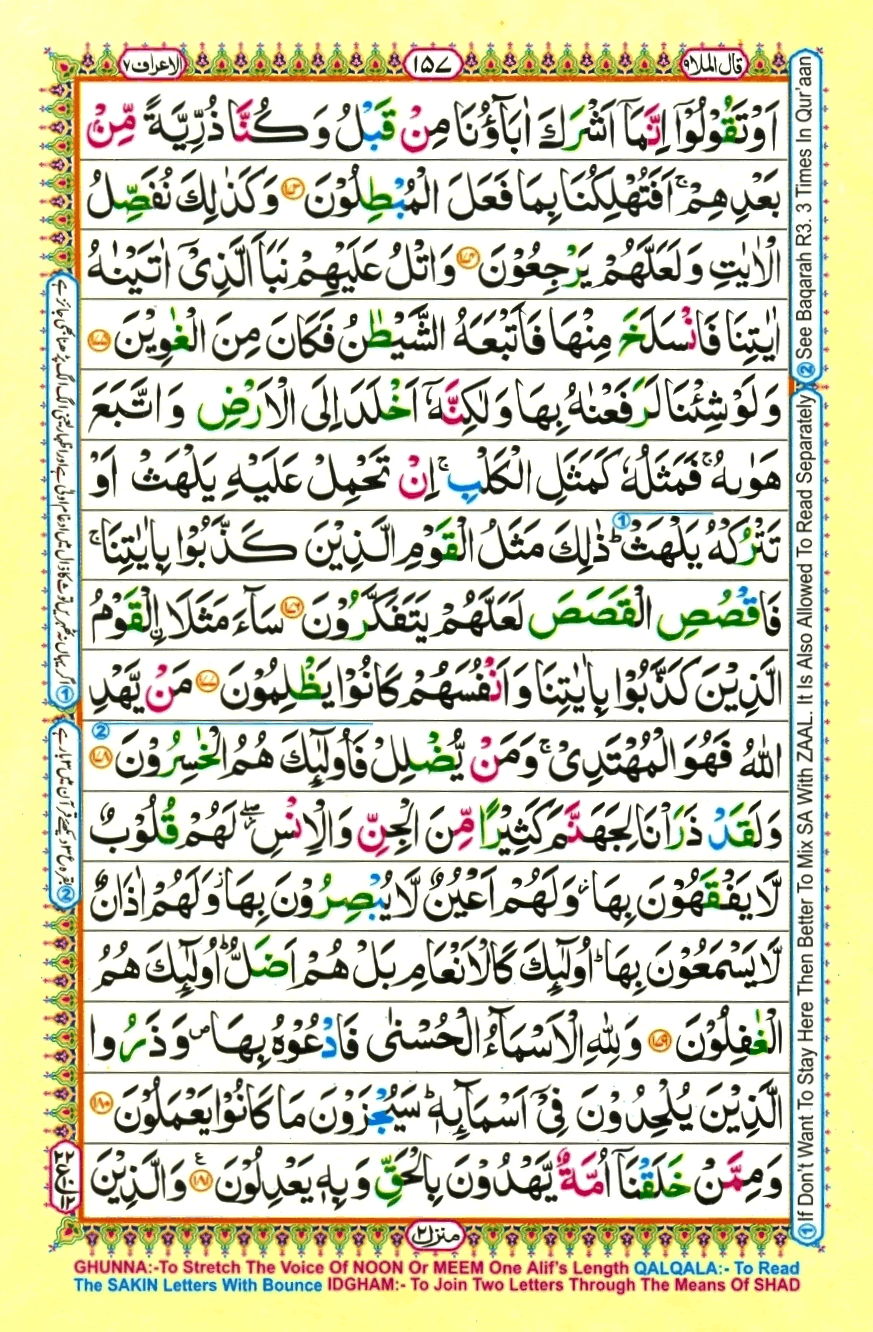 قال الملا ٩
١٥٧
الاعراف ٧
اَوْ تَقُوْلُوْۤا اِنَّمَاۤ اَشْرَكَ اٰبَآؤُنَا مِنْ قَبْلُ وَ كُنَّا ذُرِّیَّةً مِّنْۢ
بَعْدِهِمْ ۚ اَفَتُهْلِكُنَا بِمَا فَعَلَ الْمُبْطِلُوْنَ ﴿۱۷۳﴾ وَ كَذٰلِكَ نُفَصِّلُ
الْاٰیٰتِ وَ لَعَلَّهُمْ یَرْجِعُوْنَ ﴿۱۷۴﴾ وَ اتْلُ عَلَیْهِمْ نَبَاَ الَّذِیْۤ اٰتَیْنٰهُ
اٰیٰتِنَا فَانْسَلَخَ مِنْهَا فَاَتْبَعَهُ الشَّیْطٰنُ فَكَانَ مِنَ الْغٰوِیْنَ ﴿۱۷۵﴾
وَ لَوْ شِئْنَا لَرَفَعْنٰهُ بِهَا وَ لٰكِنَّهٗۤ اَخْلَدَ اِلَی الْاَرْضِ وَ اتَّبَعَ
هَوٰىهُ ۚ فَمَثَلُهٗ كَمَثَلِ الْكَلْبِ ۚ اِنْ تَحْمِلْ عَلَیْهِ یَلْهَثْ اَوْ
تَتْرُكْهُ یَلْهَثْ ؕ ① ذٰلِكَ مَثَلُ الْقَوْمِ الَّذِیْنَ كَذَّبُوْا بِاٰیٰتِنَا ۚ
فَاقْصُصِ الْقَصَصَ لَعَلَّهُمْ یَتَفَكَّرُوْنَ ﴿۱۷۶﴾ سَآءَ مَثَلَا ِ۟الْقَوْمُ
الَّذِیْنَ كَذَّبُوْا بِاٰیٰتِنَا وَ اَنْفُسَهُمْ كَانُوْا یَظْلِمُوْنَ ﴿۱۷۷﴾ مَنْ یَّهْدِ
اللّٰهُ فَهُوَ الْمُهْتَدِیْ ۚ وَ مَنْ یُّضْلِلْ فَاُولٰٓىِٕكَ هُمُ الْخٰسِرُوْنَ ② ﴿۱۷۸﴾
وَ لَقَدْ ذَرَاْنَا لِجَهَنَّمَ كَثِیْرًا مِّنَ الْجِنِّ وَ الْاِنْسِ ۖؗ لَهُمْ قُلُوْبٌ
لَّا یَفْقَهُوْنَ بِهَا ؗ وَ لَهُمْ اَعْیُنٌ لَّا یُبْصِرُوْنَ بِهَا ؗ وَ لَهُمْ اٰذَانٌ
لَّا یَسْمَعُوْنَ بِهَا ؕ اُولٰٓىِٕكَ كَالْاَنْعَامِ بَلْ هُمْ اَضَلُّ ؕ اُولٰٓىِٕكَ هُمُ
الْغٰفِلُوْنَ ﴿۱۷۹﴾ وَ لِلّٰهِ الْاَسْمَآءُ الْحُسْنٰی فَادْعُوْهُ بِهَا ۪ وَ ذَرُوا
الَّذِیْنَ یُلْحِدُوْنَ فِیْۤ اَسْمَآىِٕهٖ ؕ سَیُجْزَوْنَ مَا كَانُوْا یَعْمَلُوْنَ ﴿۱۸۰﴾
وَ مِمَّنْ خَلَقْنَاۤ اُمَّةٌ یَّهْدُوْنَ بِالْحَقِّ وَ بِهٖ یَعْدِلُوْنَ ﴿۱۸۱﴾ ع وَ الَّذِیْنَ
منزل ٢
② See Baqarah R3. 3 Times In Qur'aan
① If Don't Want To Stay Here Then Better To Mix SA With ZAAL. It Is Also Allowed To Read Separately
GHUNNA:-To Stretch The Voice Of NOON Or MEEM One Alif's Length QALQALA:- To Read
The SAKIN Letters With Bounce IDGHAM:- To Join Two Letters Through The Means Of SHAD